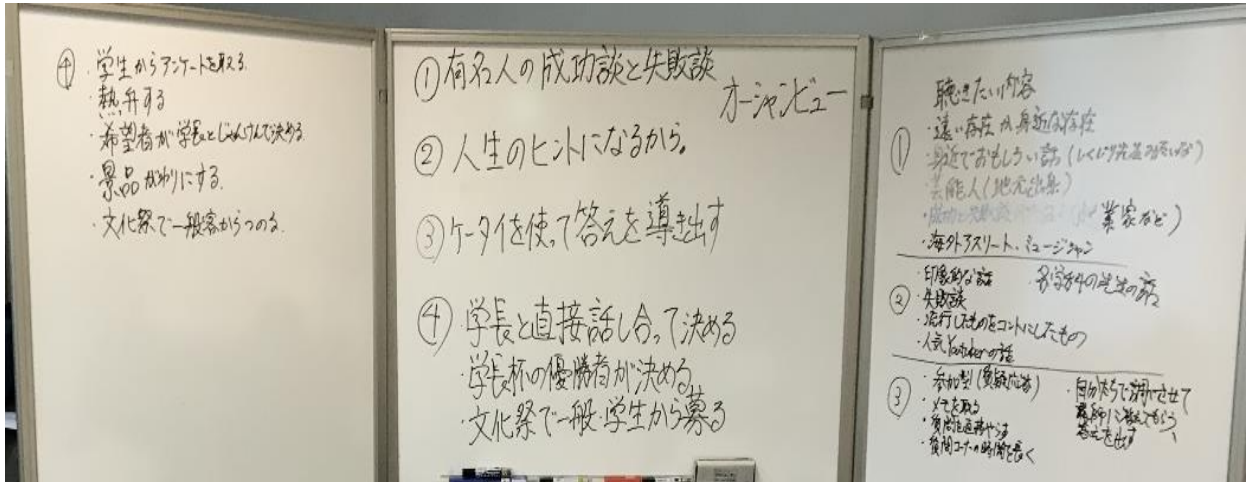 ④ ・学生からアンケートを取る.
・熱弁する
・希望者が学長とじゃんけんで決める
・景品がわりにする.
・文化祭で一般客からつのる.
①有名人の成功談と失敗談
オーシャンビュー
②人生のヒントになるから。
③ケータイを使って答えを導き出す
④・学長と直接話し合って決める
・学長杯の優勝者が決める
・文化祭で一般・学生から募る
聴きたい内容
① ・遠い存在か身近な存在
・身近でおもしろい話(しくじり先生
・芸能人(地元出身)
・成功と失敗談 業家など)
・海外アスリート・ミュージシャン
② ・印象的な話 各学科の先生の話
・失敗談
・流行したものをコントにしたもの
・人気Youtuberの話
③ ・参加型(質疑応答)
・メモを取る
・質問コーナーの時間を長く
・自分たちで調べさせて
教えてもらう、
答えを出す